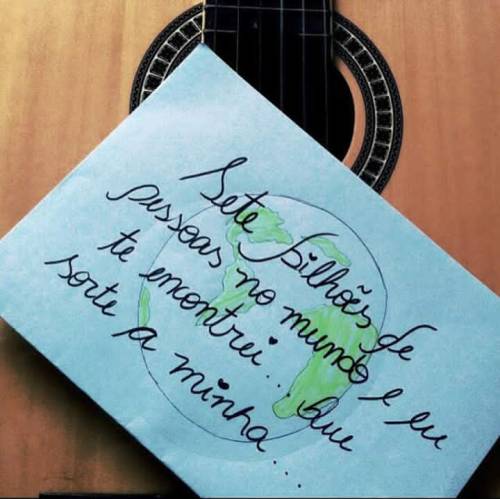 Sete bilhões de
pessoas no mundo e eu
te encontrei... que
sorte a minha...